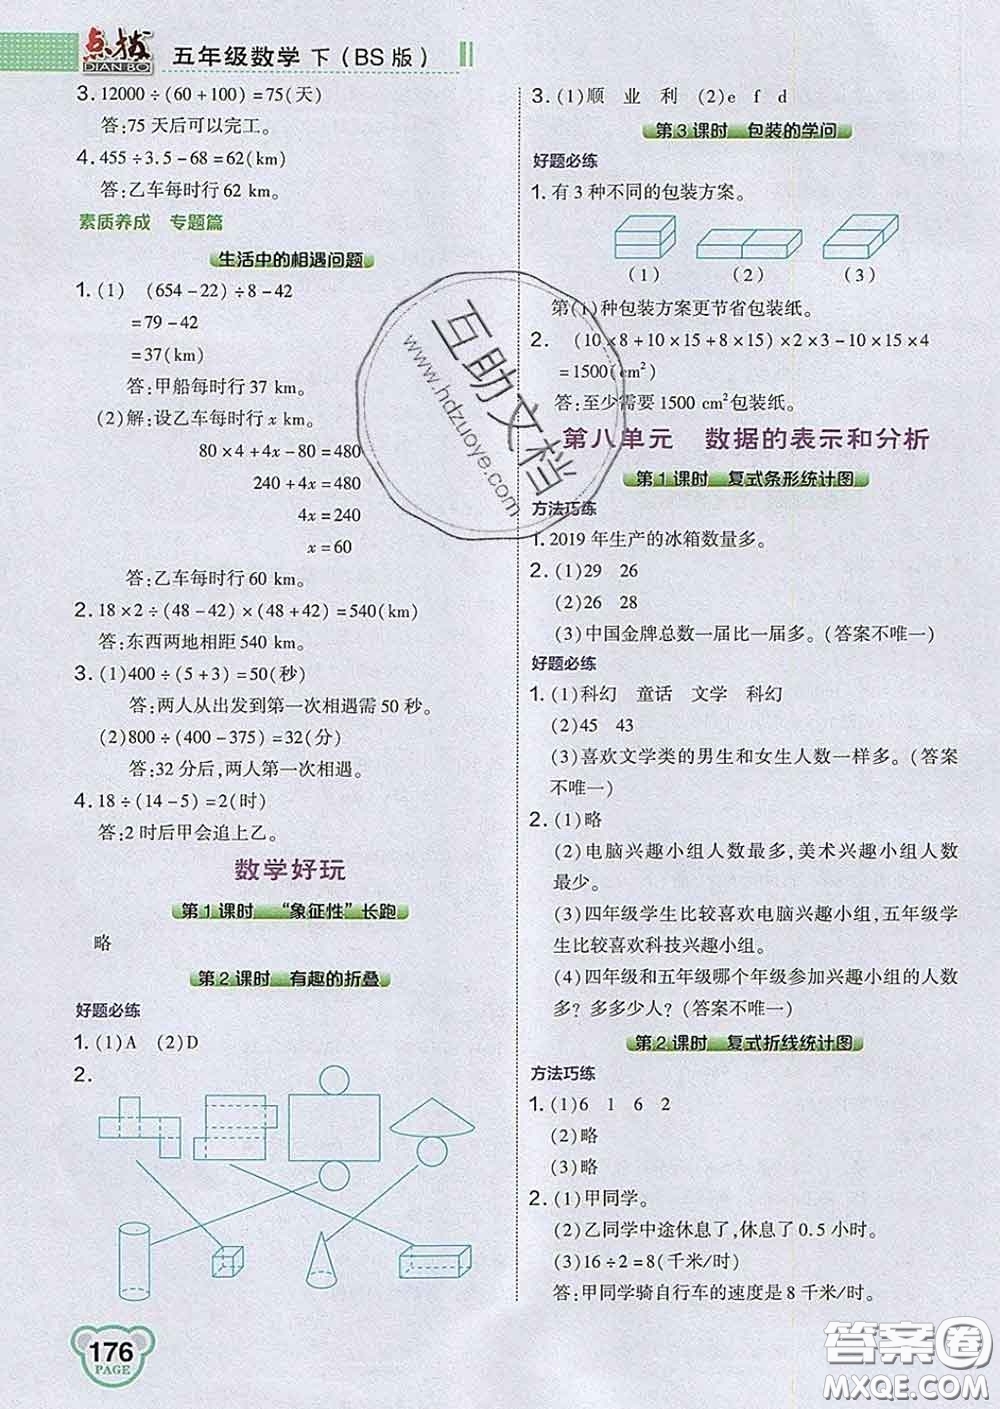 点拨
DIAN BO
五年级数学 下（BS版）
3. 12000÷(60+100)=75(天)
答:75天后可以完工。
4. 455÷3.5-68=62(km)
答:乙车每时行62 km。
素质养成 专题篇
生活中的相遇问题
1. (1) (654-22)÷8-42
=79-42
=37(km)
答:甲船每时行37 km。
(2)解:设乙车每时行x km。
80×4+4x-80=480
240+4x=480
4x=240
x=60
答:乙车每时行60 km。
2. 18×2÷(48-42)×(48+42)=540(km)
答:东西两地相距540 km。
3. (1)400÷(5+3)=50(秒)
答:两人从出发到第一次相遇需50秒。
(2)800÷(400-375)=32(分)
答:32分后,两人第一次相遇。
4. 18÷(14-5)=2(时)
答:2时后甲会追上乙。
数学好玩
第1课时 “象征性”长跑
略
第2课时 有趣的折叠
好题必练
1. (1)A (2)D
2.
176
PAGE
3. (1)顺 业 利 (2)e f d
第3课时 包装的学问
好题必练
1. 有3种不同的包装方案。
(1) (2) (3)
第(1)种包装方案更节省包装纸。
2. (10×8+10×15+8×15)×2×3-10×15×4
=1500(cm²)
答:至少需要1500 cm²包装纸。
第八单元 数据的表示和分析
第1课时 复式条形统计图
方法巧练
1. 2019年生产的冰箱数量多。
2. (1)29 26
(2)26 28
(3)中国金牌总数一届比一届多。(答案不唯一)
好题必练
1. (1)科幻 童话 文学 科幻
(2)45 43
(3)喜欢文学类的男生和女生人数一样多。(答案
不唯一)
2. (1)略
(2)电脑兴趣小组人数最多,美术兴趣小组人数
最少。
(3)四年级学生比较喜欢电脑兴趣小组,五年级学
生比较喜欢科技兴趣小组。
(4)四年级和五年级哪个年级参加兴趣小组的人数
多? 多多少人? (答案不唯一)
第2课时 复式折线统计图
方法巧练
1. (1)6 1 6 2
(2)略
(3)略
2. (1)甲同学。
(2)乙同学中途休息了,休息了0.5小时。
(3)16÷2=8(千米/时)
答:甲同学骑自行车的速度是8千米/时。
互助文档
www.hdzuoye.com
答案圈
MXQE.COM